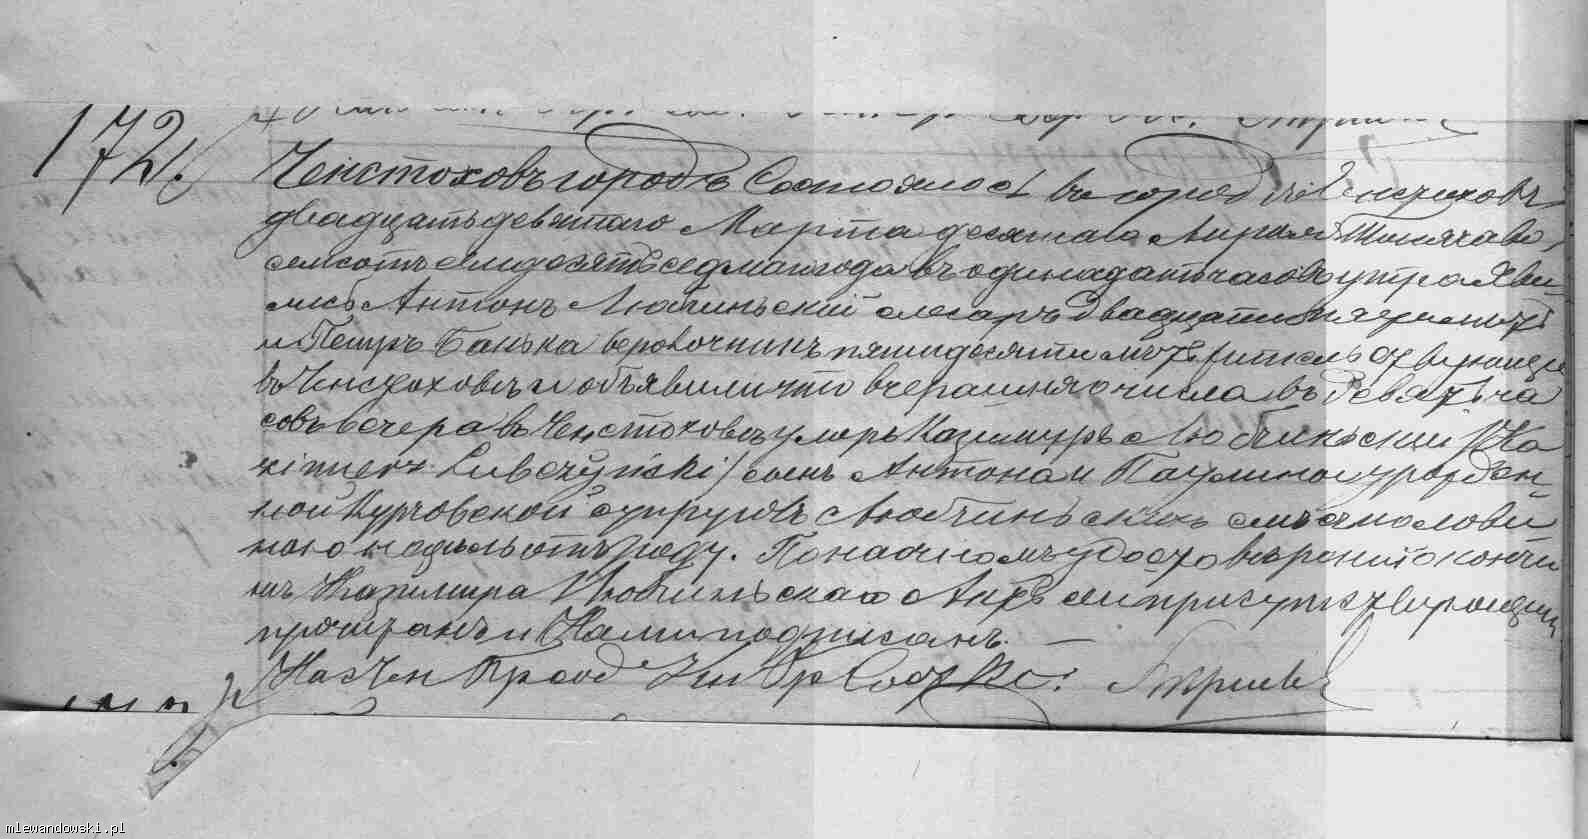 172.
Ченстоховъ городъ Состоялось въ городѣ Ченстоховѣ
двадцать девятаго Марта десятаго Апрѣля Тысяча во
семсотъ семдесятъ седмаго года въ одинадцать часовъ утра Яви
лись Антонъ Любчиньский слесаръ двадцати лѣтъ
и Петръ Банька веровочникъ пятидесяти лѣтъ жительствующіе
въ Ченстоховѣ и объявили что вчерашняго числа въ девять ча
совъ вечера въ Ченстоховѣ умеръ Казимиръ Любчиньский /Ka
zimierz Lubczyński/ сынъ Антона и Паулины урожден
ной Курковской супруговъ Любчиньскихъ семь съ полови
ною недѣль отъ роду. По наочномъ удостовѣреніи о кончи
нѣ Казимира Любчиньскаго Актъ сей присутствующимъ
прочитанъ и Нами подписанъ. —
На Чен Приход Чин Гр Сост Кс:
mlewandowski.pl